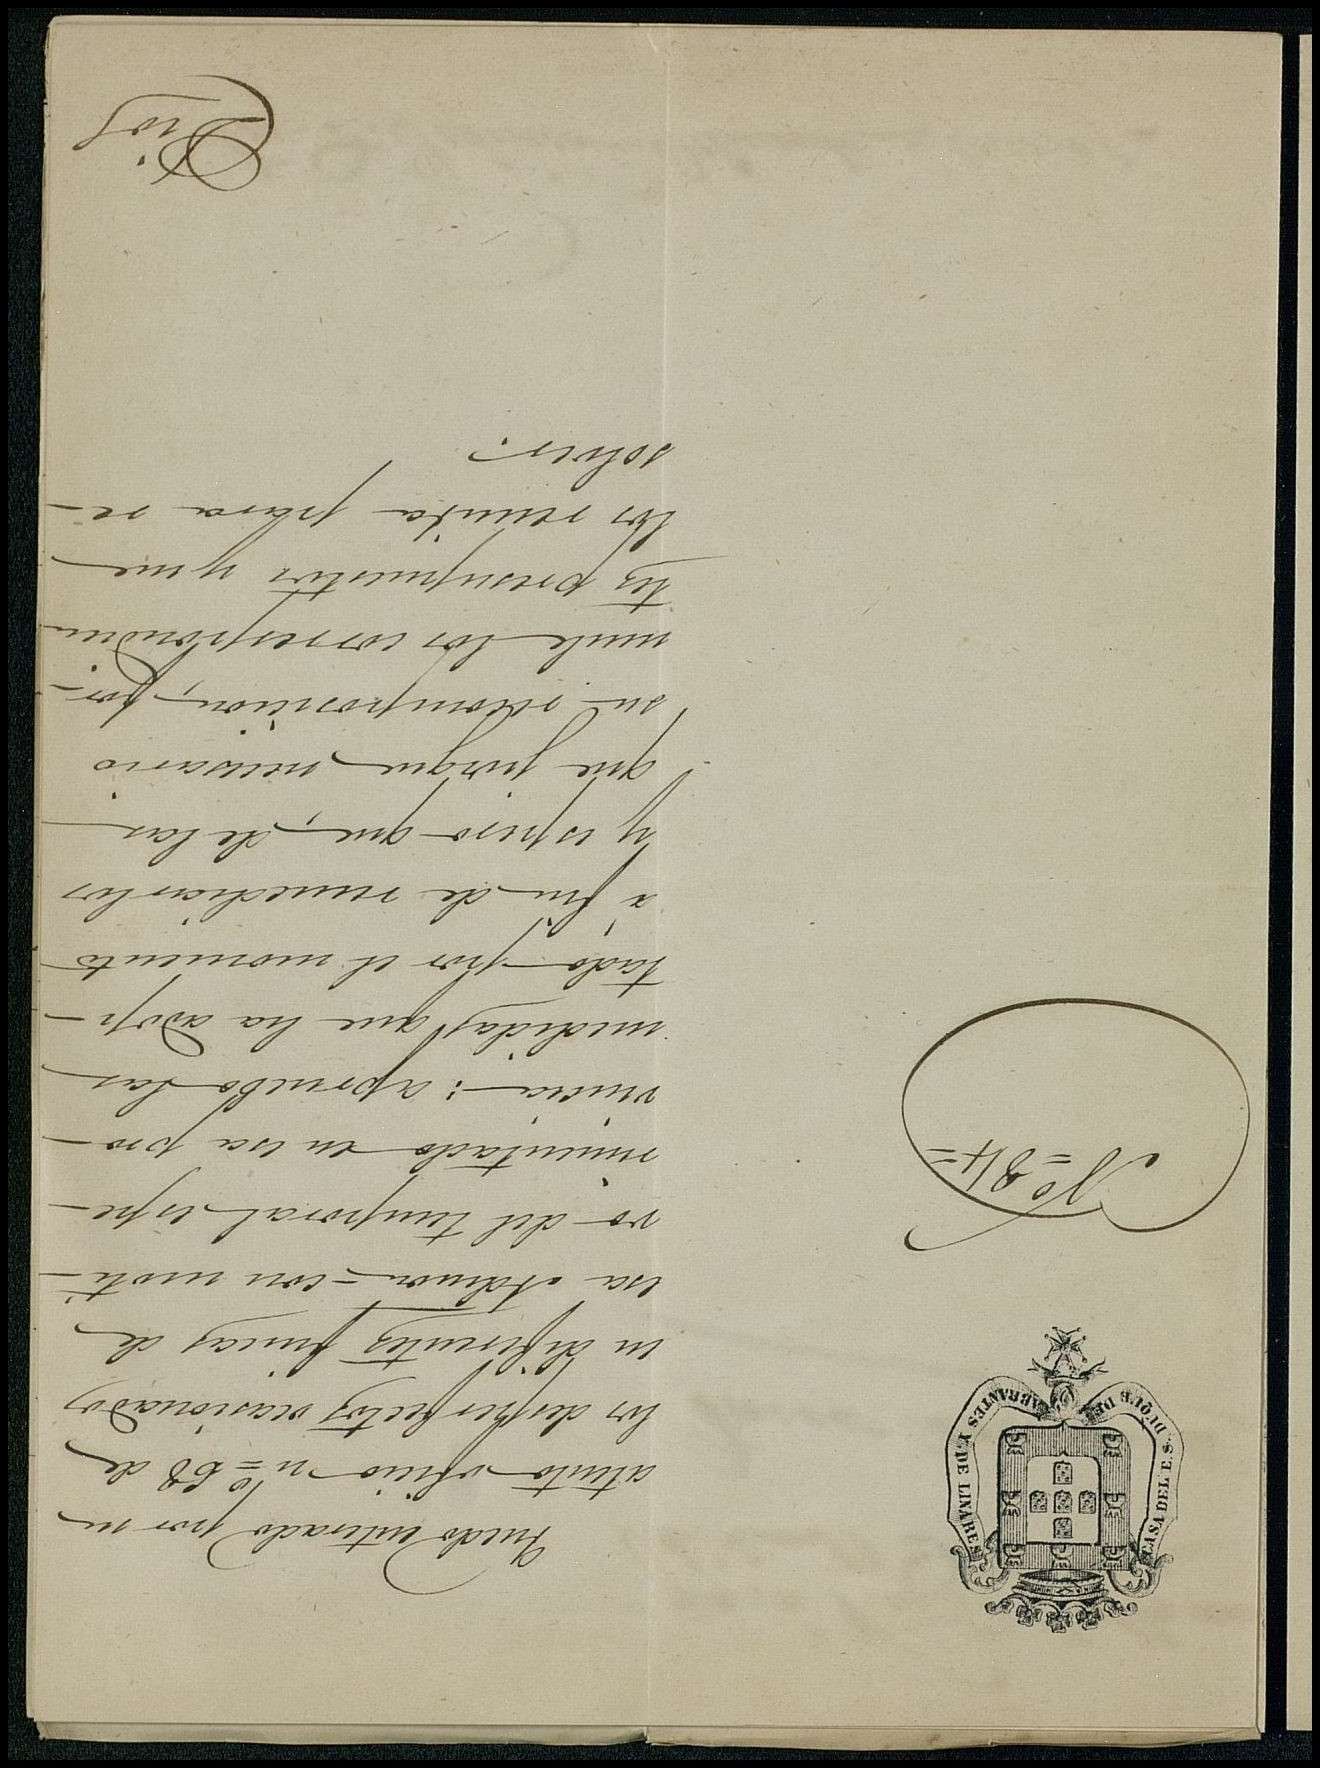 CASA DEL E.S. DUQUE DE ABRANTES Y DE LINARES
Nº=84=
Quedo enterado por su
atento oficio nº=68 de
los desperfectos ocasionados
en diferentes fincas de
esa Admon=con moti-
vo del temporal espe-
rimentado en esa pro-
vincia: apruebo las
medidas que ha adop-
tado por el momento
á fin de remediarlos
y espero que, de las
que juzgue necesario
su recomposicion, for-
mule los correspondien
tes presupuestos y me
los remita para re-
solver.
Dios